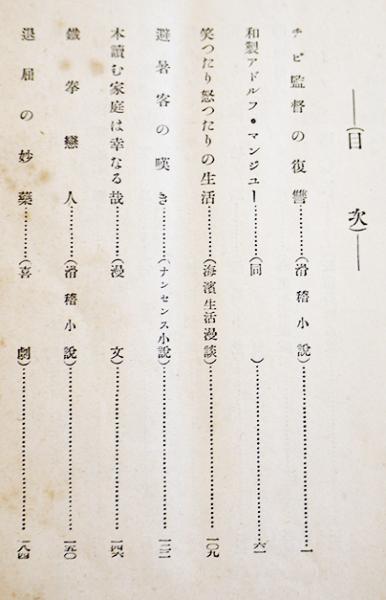 (目次)
チビ監督の復讐…………(滑稽小説)…………一
和製アドルフ・マンジユー…………(同)…………六一
笑つたり怒つたりの生活…………(海濱生活漫談)…………一〇九
避暑客の嘆き…………(ナンセンス小説)…………一三一
本讀む家庭は幸なる哉…………(漫文)…………一四六
鐵拳戀人…………(滑稽小說)…………一五〇
退屈の妙藥…………(喜劇)…………一八四